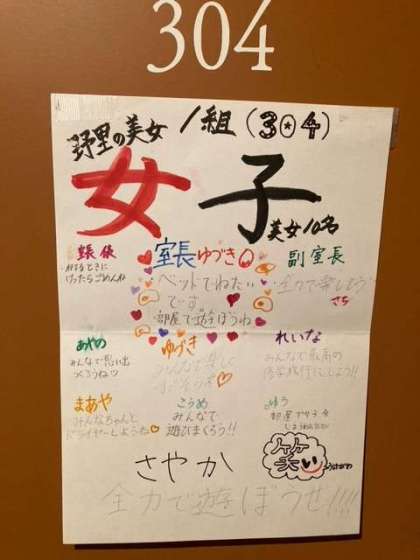 304
野里の美女 1組(3・4)
女子
美女10名
ねるときに
けったらごめんね
室長 ゆづき
ベットでねたい
です
部屋で遊ぼうね
副室長
さち
あやの
みんなで思い出
つくろうね
ゆづき
れいな
みんなで最高の
修学旅行にしよう!!
まあや
みんなちゃんと
ドライヤーしようね
こうめ
みんなで
遊びまくろう!!
ゆう
さやか
全力で遊ぼうぜ!!!!